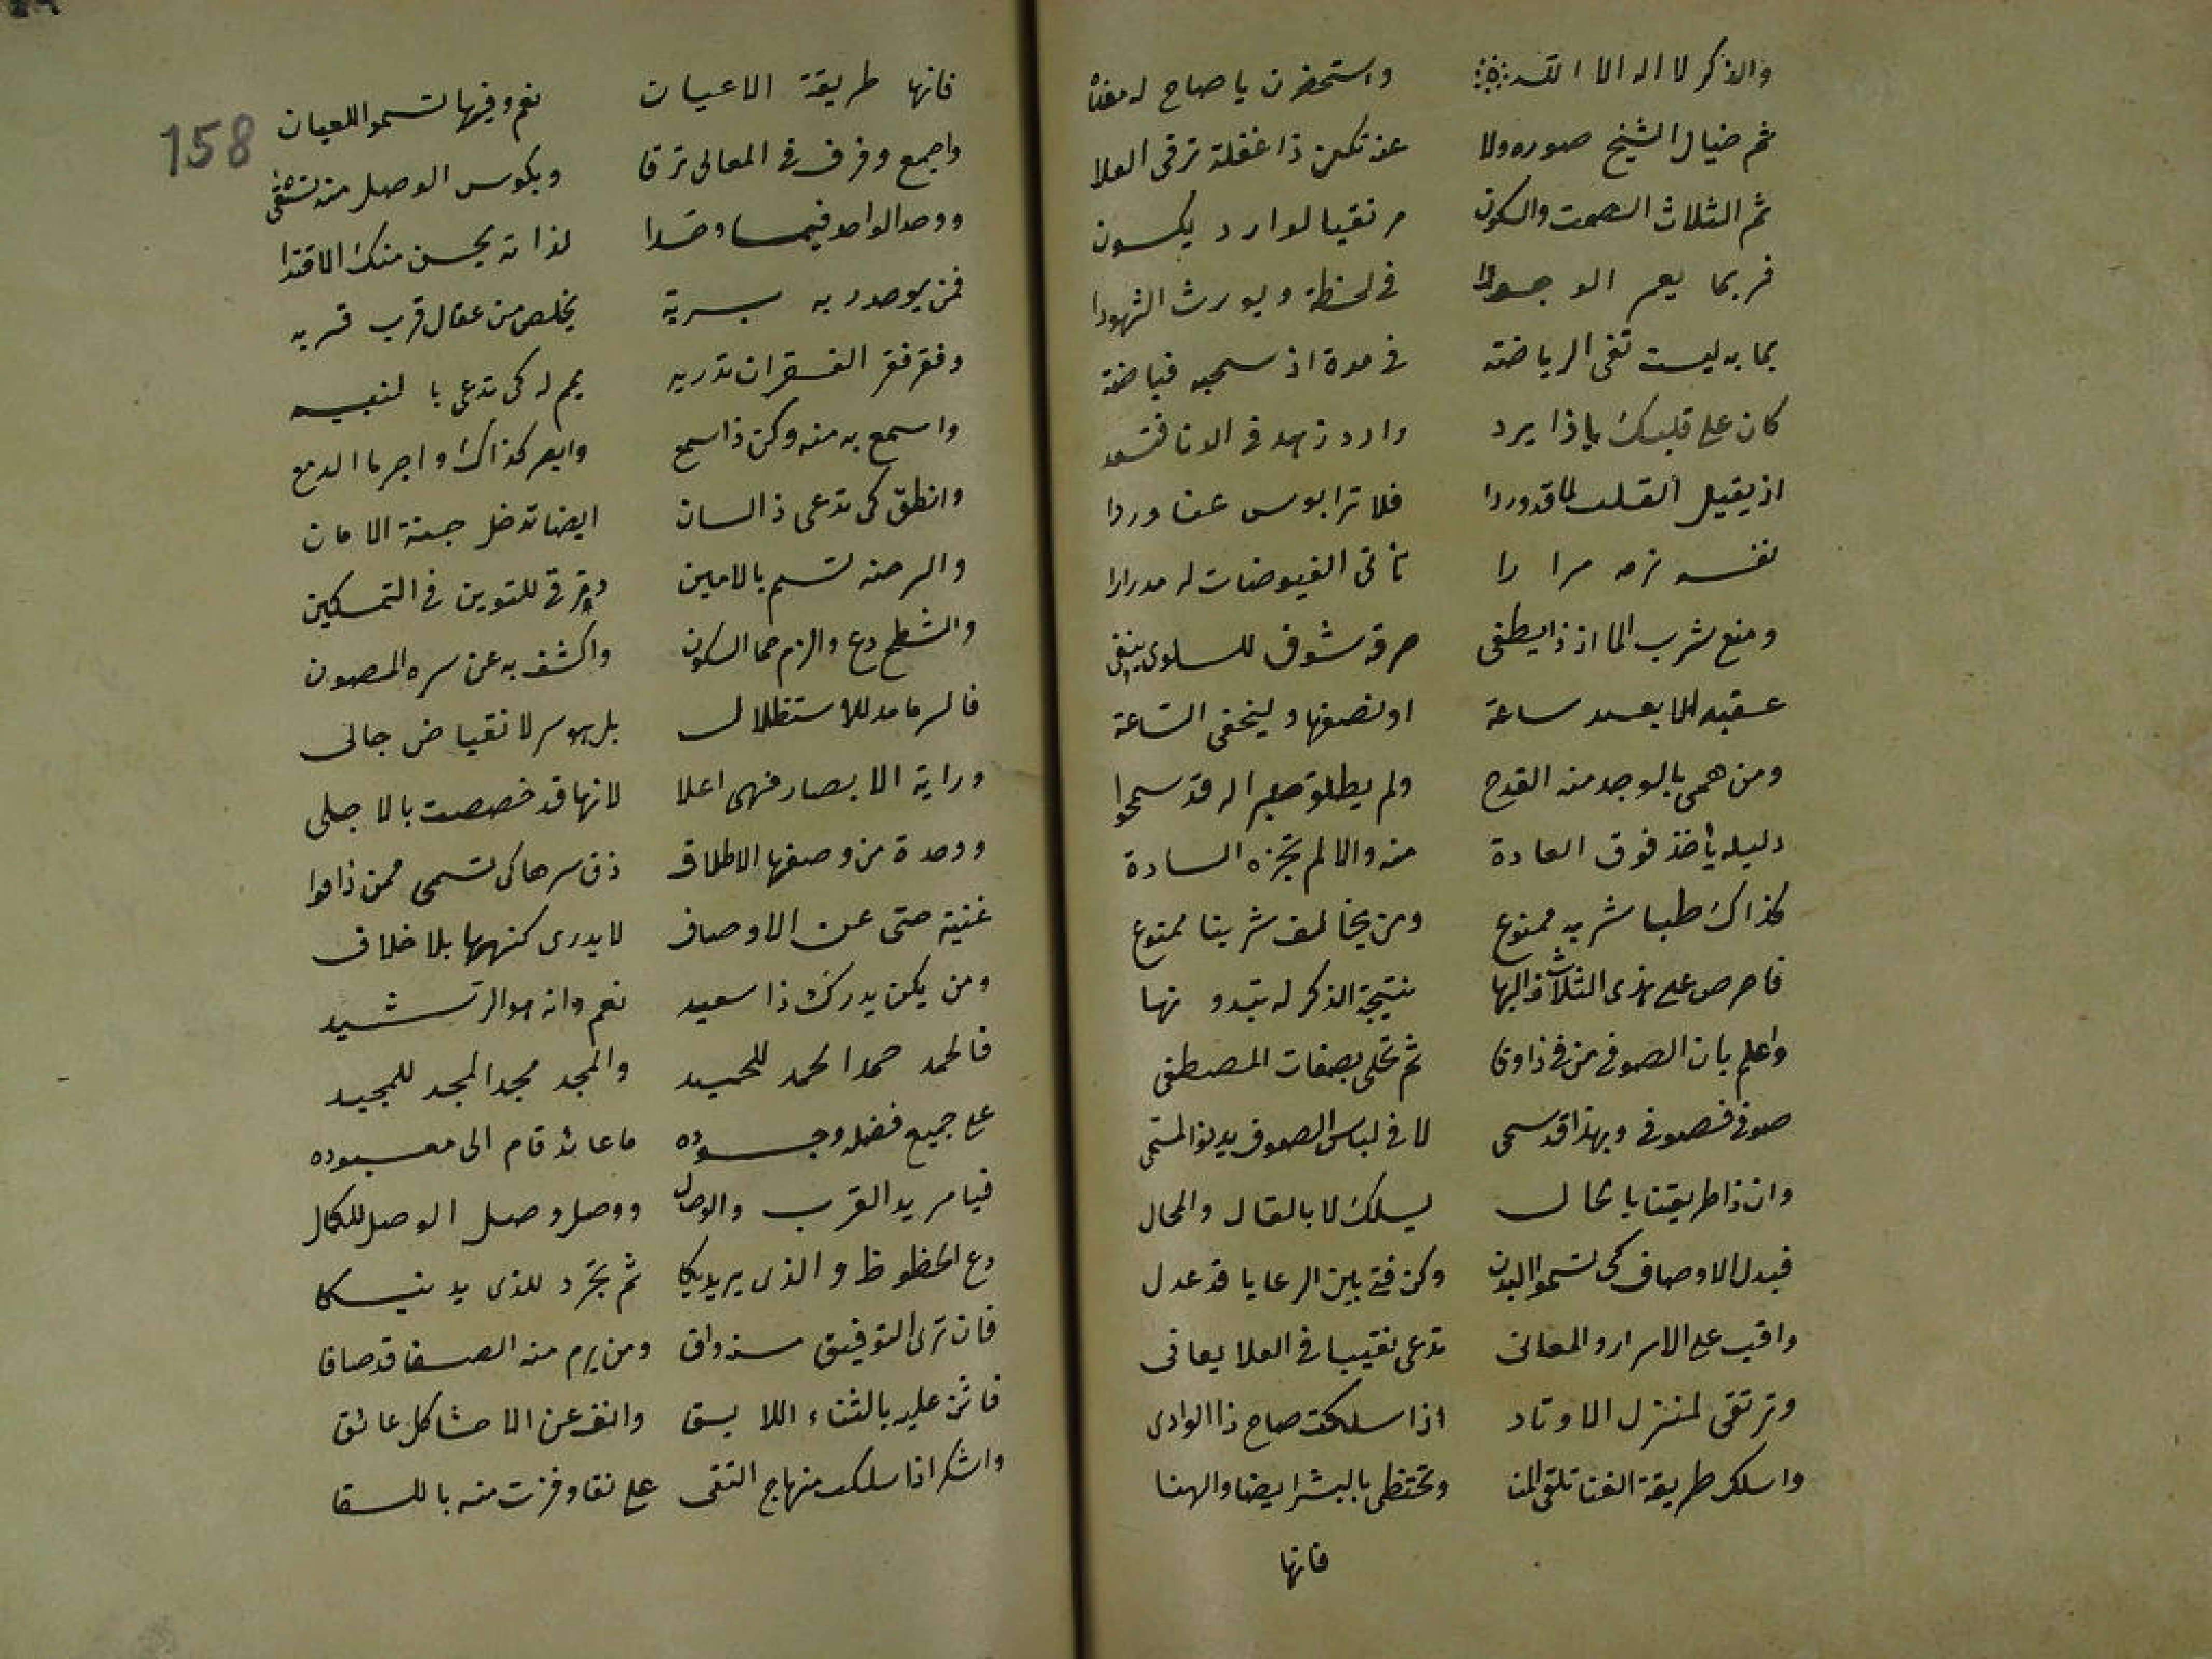 والذكر لا اله الا الله واستحضرن يا صاح له معناه
ثم خيال الشيخ صوره ولا عنه تكن ذا غفلة ترقى العلا
ثم الثلاث الصمت والسكون مرتقبا لوارد يكون
فربما يعمر الوجودا في لحظة ويورث الشهودا
بما به ليست تفى الرياضه في مدة اذ سحبه فياضة
كان على قلبك يا ذا يرد وارد زهد في الدنا
اذ يقبل القلب لما قد وردا فلا ترا بوس عنا وردا
نفسه زمه مرارا تأتى الفيوضات له مدرارا
ومنع شرب الما اذ ذا يطفى حرقة شوق للسلوى ينفى
عقبه الا بعد ساعة او نصفها وليخفى الساعة
ومن همى بالوجد منه القدح ولم يطق صبرا له قد سمحوا
دليله يأخذ فوق العادة منه والا لم تجزه السادة
كذاك طبا شربه ممنوع ومن يخالف شربنا ممنوع
فاحرص على هذى الثلاث نتيجة الذكر له تبدو بها
واعلم بان الصوفى من في ذا وفا ثم تحلى بصفات المصطفى
صوفى فصوفى وبهذا قد سمى لا في لباس الصوف
وان ذا طريقنا بالحال يسلك لا بالقال والمحال
فبدل الاوصاف كى تسمو البدل وكن فتى بين الرعايا قد عدل
واقب على الاسرار والمعانى تدعى نقيبا في العلا يعانى
وترتقى لمنزل الاوتاد اذا سلكت صاح ذا الوادى
واسلك طريقة الفنا تلقى المنا وتحتظى بالبشر ايضا والهنا
فانها
158
فانها طريقة الاعيان نعم وفيها تسمو للعيان
واجمع وفرق في المعالى ترقا وبكوس الوصل منه تسقى
ووحد الواحد فيما وحدا لذاته يحسن منك الاقتدا
فمن يوحد ربه بسربه يخلص من عقال قرب قربه
وفقر فقر الفقر ان تدريه يم له كى تدعى بالنبيه
واسمع به منه وكن ذا سمع وابصر كذاك واجر ما الدمع
وانطق كى تدعى ذا لسان ايضا تدخل جنة الامان
والسر صنه تسم بالامين وترقى للتوين في التمكين
والشطح دع والزم حما السكون واكشف به عن سره المصون
فالسر ما مد للاستظلال بل هو سر لانقياض جالى
وراية الابصار فهى اعلا لانها قد خصصت بالاجلى
ووحدة من وصفها الاطلاق ذق سرها كى تسمى ممن ذاقوا
غنية حتى عن الاوصاف لا يدرى كنهها بلا خلاف
ومن يكن يدرك ذا سعيد نعم وانه هو الرشيد
فالحمد حمد الحمد للحميد والمجد مجد المجد للمجيد
على جميع فضله وجوده ما عابد قام الى معبوده
فيا مريد القرب والوصال ووصل وصل الوصل للكمال
دع الحظوظ والذى يريديكا ثم تجرد للذى يدنيكا
فان ترى التوفيق منه وافى ومن يرم منه الصفا قد صافا
فاثن عليه بالثناء اللايق وانف عن الاحشا كل عائق
واشكر اذا سلكت منهاج التقى على نقا وفزت منه باللقا